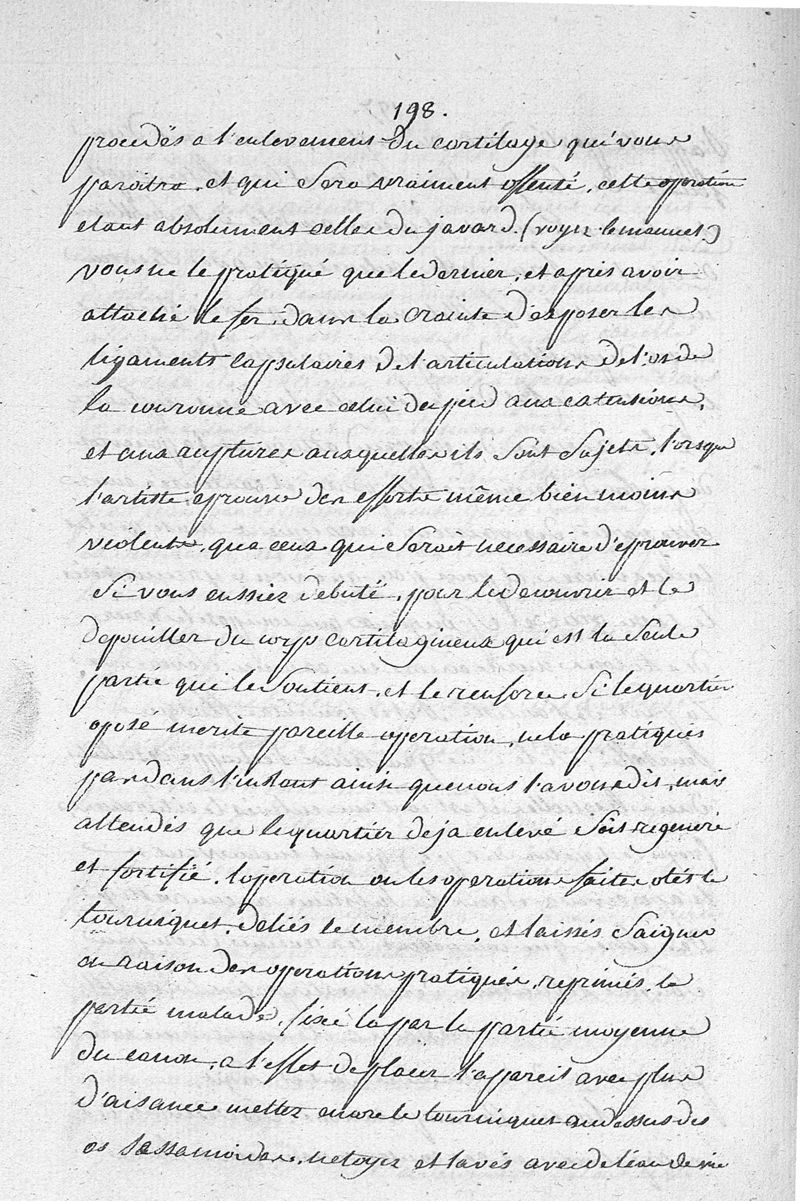 198.
procedés a l'enlevement du cartilage qui vous
paroitra, et qui sera vraiment affecté, cette operation
etant absolument celle du javard. (voyez le manuel.)
vous ne le pratiqué que le dernier, et aprés avoir
attaché le fer, dans la crainte d'exposer les
ligaments capsulaires de l'articulations de l'os de
la couronne avec celui du pied aux extensions,
et aux ruptures auxquelles ils sont sujets, lorsque
l'artiste eprouve des efforts même bien moins
violents, que ceux qui seroit necessaire d'eprouver
si vous eussiez debuté, pour le decouvrir et le
depouiller du corp cartilagineux qui est la seule
partie qui le soutiens, et le renforce. Si le quartier
oposé merite pareille operation, ne la pratiques
pas dans l'instant ainsi que nous l'avons dis, mais
attendés que le quartier deja enlevé soit regeneré
et fortifié. l'operation ou les operations faites otés le
tourniquet, deliés le membre, et laissés saigner
en raison des operations pratiqués, reprimés la
partie malade, fixé la par la partie moyenne
du canon, a l'effet de placer l'apareil avec plus
d'aisance mettez encore le tourniquet au dessus des
os sessamoides, netoyez et lavés avec de l'eau de vie